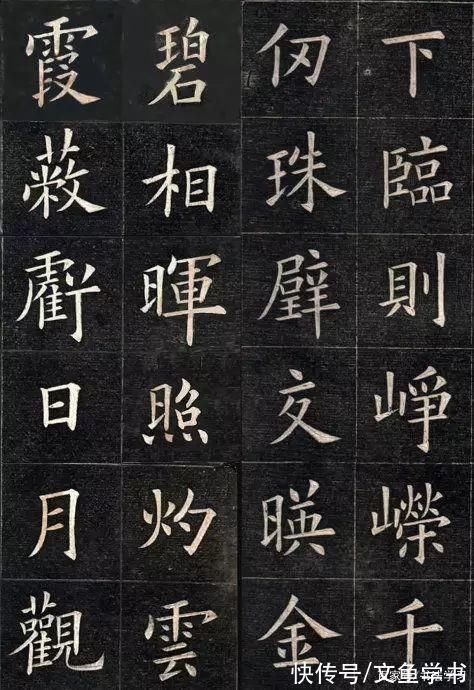 下臨則崢嶸千
仞珠壁交暎金
碧相暉照灼雲
霞蔽虧日月觀
快传号/文鱼学书